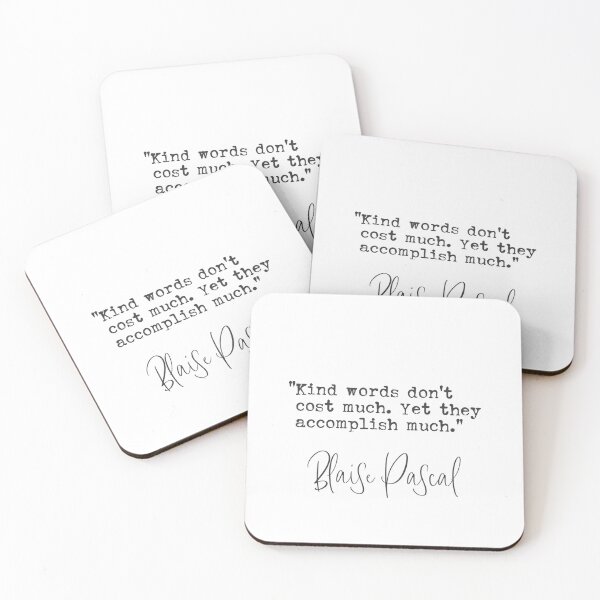 "Kind words don't
cost much. Yet they
acco   uch."
"Kind words don't
cost much. Yet they
accomplish much."
Blaise Pascal
"Kind words don't
cost much. Yet they
accomplish much."
Blaise Pasc
"Kind words don't
cost much. Yet they
accomplish much."
Blaise Pascal